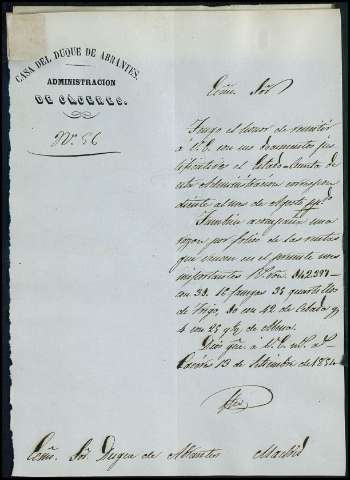 CASA DEL DUQUE DE ABRANTES.
ADMINISTRACION
DE CÁCERES.
Nº 56
Exmo Sor
Tengo el honor de remitir
a V. E. con sus documentos jus
tificativos el Estado-Cuenta de
esta Administración correspon
diente al mes de Agosto ppdo
Tambien acompaño una
razon por folios de las rentas
que vencen en el presente mes
importantes Rs von 042597
con 33. 12 fanegas 35 quartillos
de trigo, 30 con 42 de Cebada y
4 con 25 y ½ de
Dios gue. a V. E. ms as
Cáceres 13 de Setiembre de 1854
Exmo Sor Duque de Abrantes Madrid